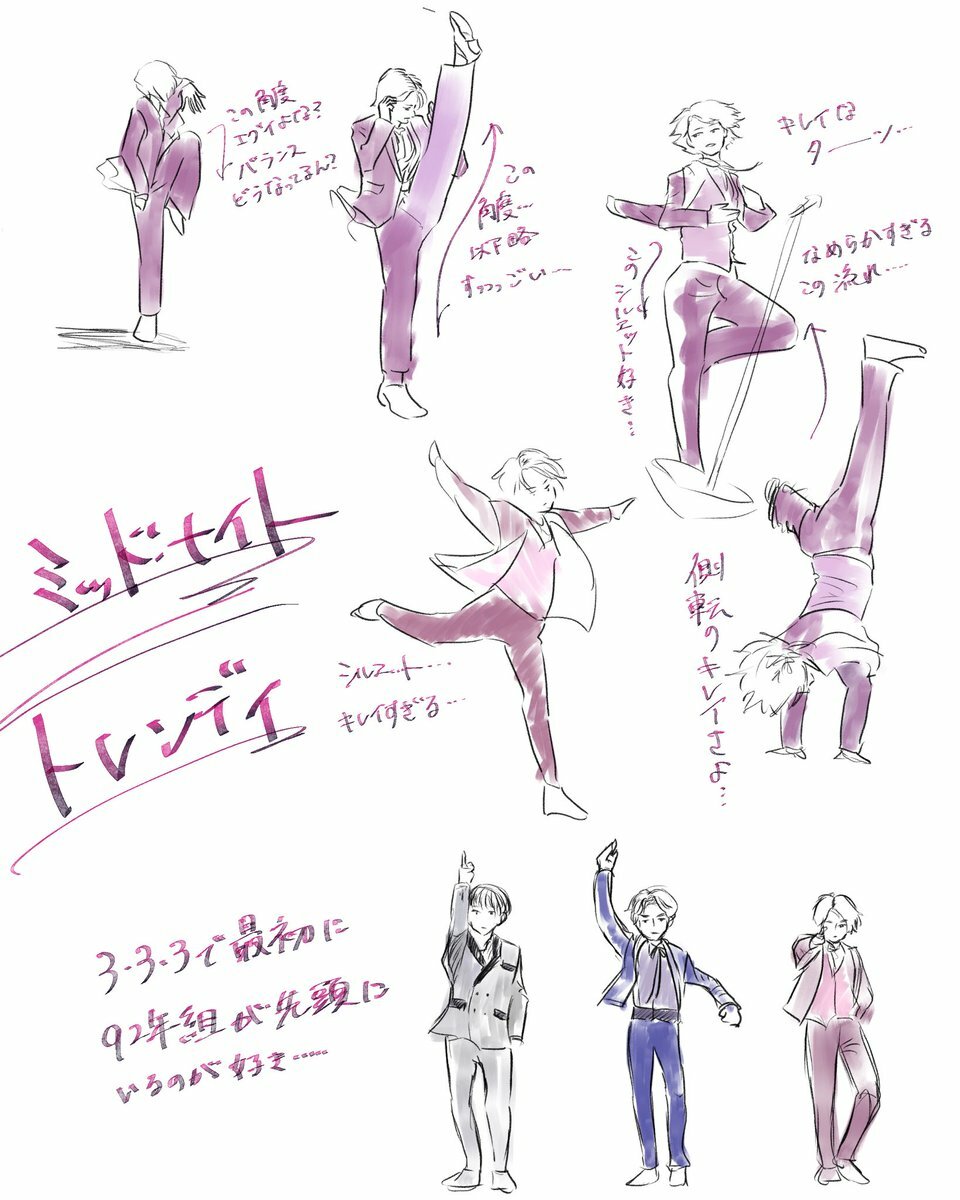 この角度
エグイよな?
バランス
どうなってるん?
この
角度…
以下略
すっっっごい…
キレイな
ターン…
このシルエット好き…
なめらかすぎる
この流れ…
ミッドナイト
トレンディ
シルエット…
キレイすぎる…
側転のキレイさよ…
3-3-3で最初に
92年組が先頭に
いるのが好き……